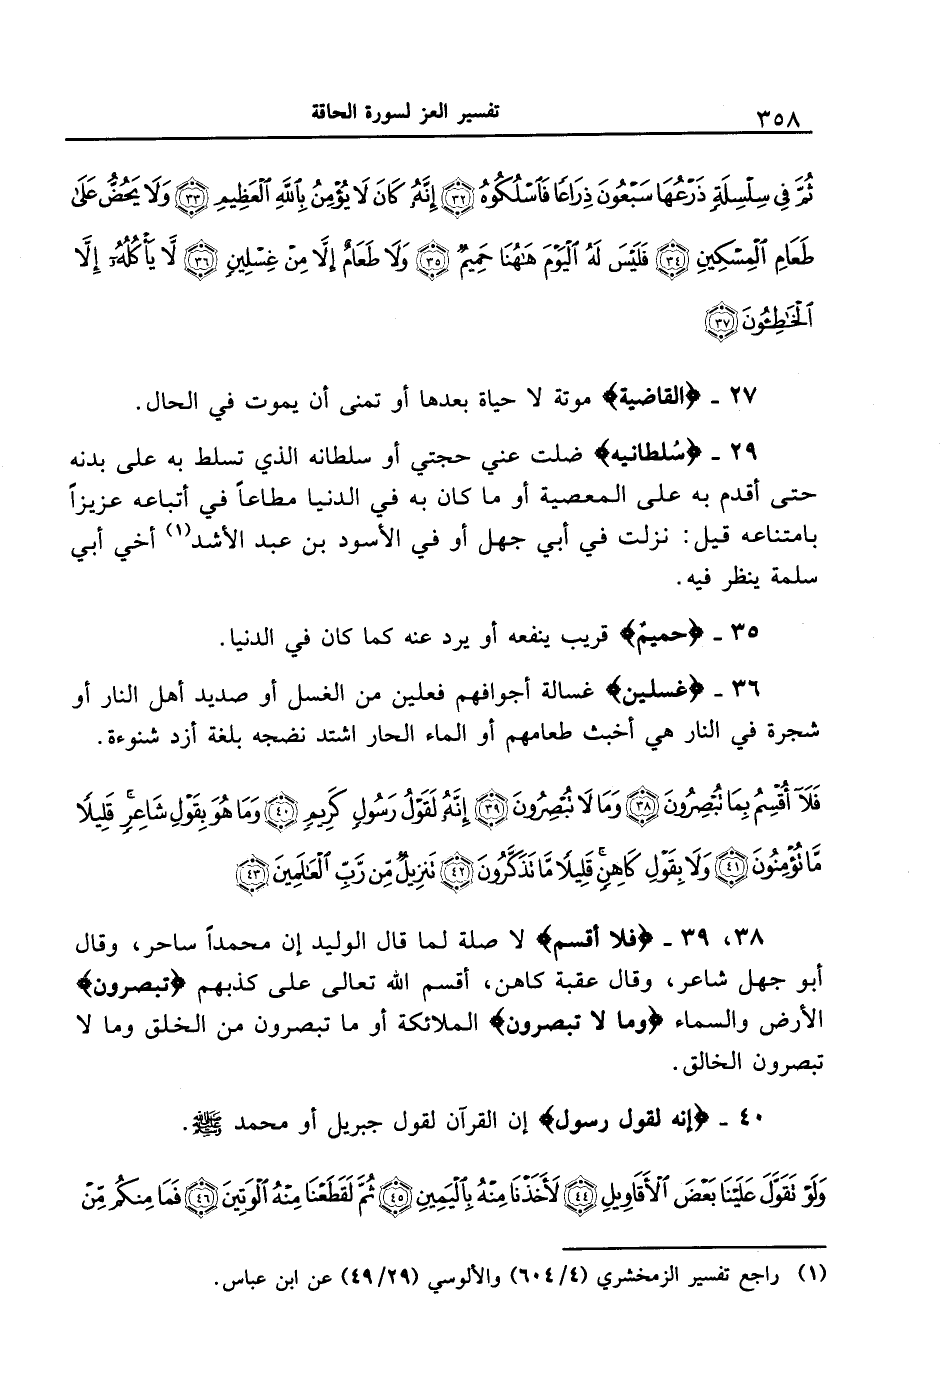 ٣٥٨ تفسير العز لسورة الحاقة
ثُمَّ فِي سِلْسِلَةٍ ذَرْعُهَا سَبْعُونَ ذِرَاعًا فَاسْلُكُوهُ ﴿٣٢﴾ إِنَّهُ كَانَ لَا يُؤْمِنُ بِاللَّهِ الْعَظِيمِ ﴿٣٣﴾ وَلَا يَحُضُّ عَلَى
طَعَامِ الْمِسْكِينِ ﴿٣٤﴾ فَلَيْسَ لَهُ الْيَوْمَ هَاهُنَا حَمِيمٌ ﴿٣٥﴾ وَلَا طَعَامٌ إِلَّا مِنْ غِسْلِينٍ ﴿٣٦﴾ لَّا يَأْكُلُهُ إِلَّا
الْخَاطِئُونَ ﴿٣٧﴾
٢٧ ـ ﴿القاضية﴾ موتة لا حياة بعدها أو تمنى أن يموت في الحال.
٢٩ ـ ﴿سُلطانيه﴾ ضلت عني حجتي أو سلطانه الذي تسلط به على بدنه
حتى أقدم به على المعصية أو ما كان به في الدنيا مطاعاً في أتباعه عزيزاً
بامتناعه قيل: نزلت في أبي جهل أو في الأسود بن عبد الأشد(١) أخي أبي
سلمة ينظر فيه.
٣٥ ـ ﴿حميمٌ﴾ قريب ينفعه أو يرد عنه كما كان في الدنيا.
٣٦ ـ ﴿غسلين﴾ غسالة أجوافهم فعلين من الغسل أو صديد أهل النار أو
شجرة في النار هي أخبث طعامهم أو الماء الحار اشتد نضجه بلغة أزد شنوءة.
فَلَا أُقْسِمُ بِمَا تُبْصِرُونَ ﴿٣٨﴾ وَمَا لَا تُبْصِرُونَ ﴿٣٩﴾ إِنَّهُ لَقَوْلُ رَسُولٍ كَرِيمٍ ﴿٤٠﴾ وَمَا هُوَ بِقَوْلِ شَاعِرٍ ۚ قَلِيلًا
مَّا تُؤْمِنُونَ ﴿٤١﴾ وَلَا بِقَوْلِ كَاهِنٍ ۚ قَلِيلًا مَّا تَذَكَّرُونَ ﴿٤٢﴾ تَنزِيلٌ مِّن رَّبِّ الْعَالَمِينَ ﴿٤٣﴾
٣٨، ٣٩ ـ ﴿فلا أقسم﴾ لا صلة لما قال الوليد إن محمداً ساحر، وقال
أبو جهل شاعر، وقال عقبة كاهن، أقسم الله تعالى على كذبهم ﴿تبصرون﴾
الأرض والسماء ﴿وما لا تبصرون﴾ الملائكة أو ما تبصرون من الخلق وما لا
تبصرون الخالق.
٤٠ ـ ﴿إنه لقول رسول﴾ إن القرآن لقول جبريل أو محمد ﷺ.
وَلَوْ تَقَوَّلَ عَلَيْنَا بَعْضَ الْأَقَاوِيلِ ﴿٤٤﴾ لَأَخَذْنَا مِنْهُ بِالْيَمِينِ ﴿٤٥﴾ ثُمَّ لَقَطَعْنَا مِنْهُ الْوَتِينَ ﴿٤٦﴾ فَمَا مِنكُم مِّنْ
(١) راجع تفسير الزمخشري (٦٠٤/٤) والألوسي (٤٩/٢٩) عن ابن عباس.